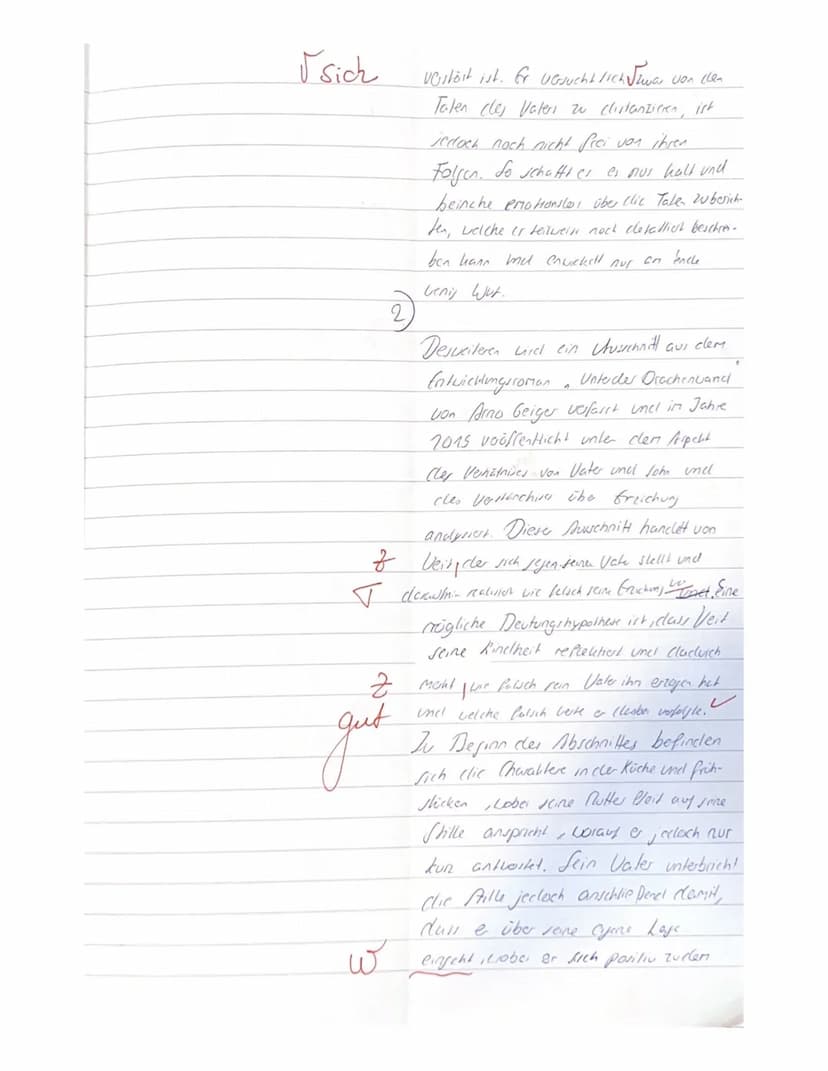 √ sich
verstört ist. Er versucht sich √ zwar von den
Taten des Vaters zu distanzieren, ist
jedoch noch nicht frei von ihren
Folgen. So schafft er es nur kalt und
beinahe emotionslos über die Taten zu berich-
ten, welche er teilweise noch detailliert beschrei-
ben kann und entwickelt nur am Ende
wenig Wut.
2)
Desweiteren wird ein Ausschnitt aus dem
Entwicklungsroman „Unter der Drachenwand"
von Arno Geiger verfasst und im Jahre
2015 veröffentlicht unter dem Aspekt
des Verhältnises von Vater und Sohn und
des über Erziehung
analysiert. Dieser Ausschnitt handelt von
Z
Veit, der sich gegen seinen Vater stellt und
T
daraufhin realisiert wie falsch seine Erziehung war. Eine
mögliche Deutungshypothese ist, dass Veit
seine Kindheit reflektiert und dadurch
Z
merkt, wie falsch sein Vater ihn erzogen hat
gut
und welche falsch Werte er verfolgte. ✓
Zu Beginn des Abschnittes befinden
sich die Charaktere in der Küche und früh-
stücken, wobei seine Mutter Veit auf seine
Stille anspricht, worauf er jedoch nur
kurz antwortet. Sein Vater unterbricht
die Stille jedoch anschließend damit,
dass er über seine eigene Lage
W
eingeht, wobei er sich positiv zu den